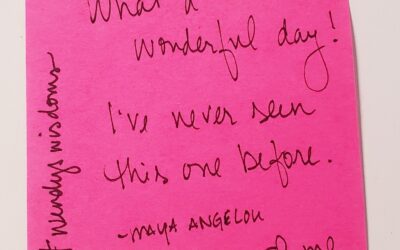 What a
wonderful day!
I've never seen
this one before.
-MAYA ANGELOU
wendys wisdoms